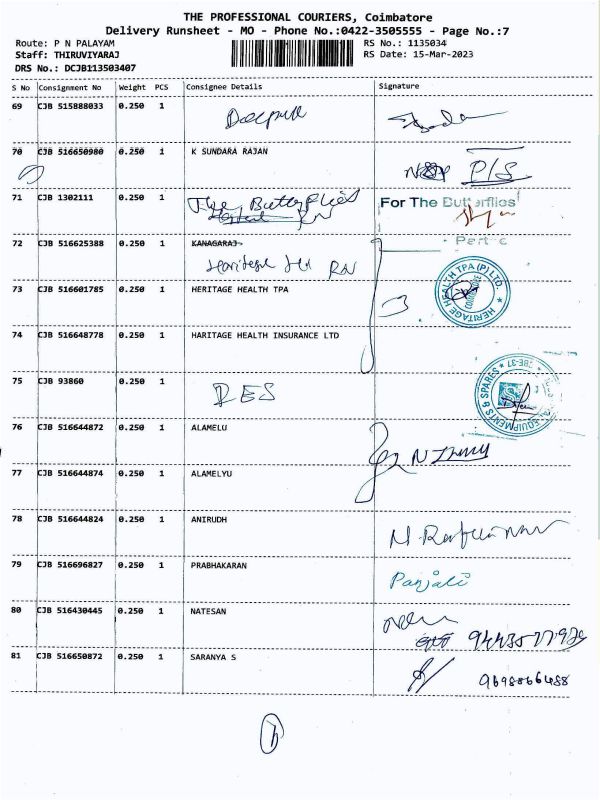 THE PROFESSIONAL COURIERS, Coimbatore
Delivery Runsheet - MO - Phone No.:0422-3505555 - Page No.:7
Route: P N PALAYAM
Staff: THIRUVIYARAJ
DRS No.: DCJB113503407
RS No.: 1135034
RS Date: 15-Mar-2023
S No Consignment No Weight PCS Consignee Details Signature
69 CJB 515888033 0.250 1
70 CJB 516650980 0.250 1 K SUNDARA RAJAN P/S
71 CJB 1302111 0.250 1 The Butterflies RN For The Butterflies
72 CJB 516625388 0.250 1 KANAGARAJ
RN
73 CJB 516601785 0.250 1 HERITAGE HEALTH TPA HERITAGE HEALTH TPA (P) LTD.
74 CJB 516648778 0.250 1 HARITAGE HEALTH INSURANCE LTD
75 CJB 93860 0.250 1 RES EQUIPMENTS & SPARES
76 CJB 516644872 0.250 1 ALAMELU
77 CJB 516644874 0.250 1 ALAMELYU
78 CJB 516644824 0.250 1 ANIRUDH
79 CJB 516696827 0.250 1 PRABHAKARAN Panjali
80 CJB 516430445 0.250 1 NATESAN
81 CJB 516650872 0.250 1 SARANYA S